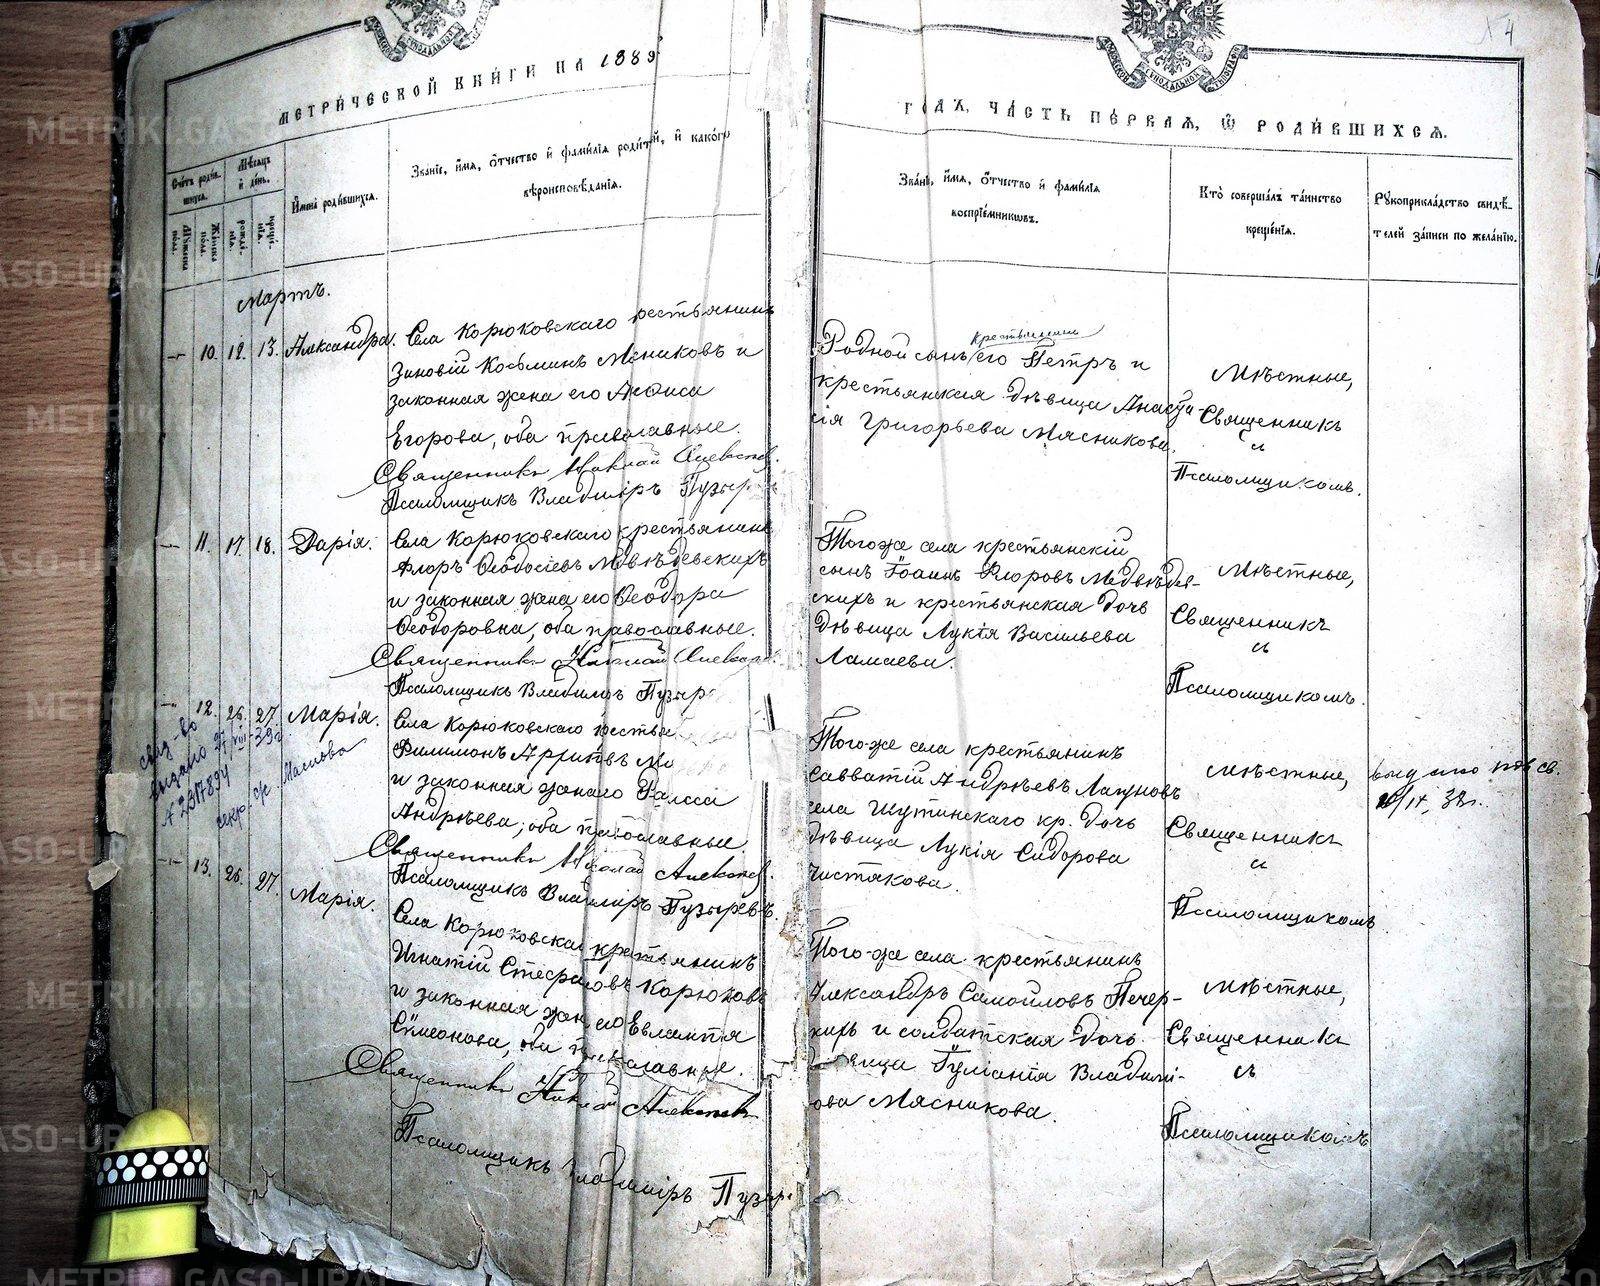 4
МЕТРИЧЕСКОЙ КНИГИ НА 1885
ГОДЪ, ЧАСТЬ ПЕРВАЯ, Ѿ РОДИВШИХСЯ.
Счётъ родившихся.
Мужеска пола.
Женска пола.
Мѣсяцъ и день.
рожденія.
крещенія.
Имена родившихся.
Званіе, имя, отчество и фамилія родитей, и какогѡ
вѣроисповѣданія.
Званіе, имя, отчество и фамилія
воспріемникѡвъ.
Кто совершалъ таинство
крещенія.
Рукоприкладство свидѣ-
телей записи по желанію.
Мартъ.
10. 12. 13. Александра. Села Корюковскаго крестьянинъ
Зиновій Косьминъ Мясниковъ и
законная жена его Анѳиса
Егорова, оба православные.
Священникъ Николай
Псаломщикъ Владиміръ
крестьянинъ
Родной сынъ его Петръ и
крестьянская дѣвица Анаста-
сія Григорьева Мясникова.
Мѣстные,
Священникъ
съ
Псаломщикомъ.
11. 17. 18. Дарія. Села Корюковскаго крестьянинъ
Флоръ Ѳеодосіевъ Медвѣдевскихъ
и законная жена его Ѳеодора
Ѳеодоровна, оба православные.
Священникъ Николай
Псаломщикъ Владиміръ
Того-же села крестьянскій
сынъ Іоаннъ Флоровъ Медвѣдев-
скихъ и крестьянская дочь
дѣвица Лукія Васильева
Ламаева.
Мѣстные,
Священникъ
съ
Псаломщикомъ.
12. 26. 27. Марія. Села Корюковскаго
Филимонъ
и законная жена его
Андрѣева, оба православные
Священникъ Николай
Псаломщикъ Владиміръ Пузыревъ.
свид-во
выдано
Того-же села крестьянинъ
Савватій Андрѣевъ Лагуновъ
села Шутинскаго кр. дочь
дѣвица Лукія Сидорова
Чистякова.
Мѣстные,
Священникъ
и
Псаломщикомъ
13. 26. 27. Марія. Села Корюковскаго крестьянинъ
Игнатій Стефановъ Корюковъ
и законная жена его Евлампія
Симеонова, оба православные.
Священникъ Николай
Псаломщикъ Владиміръ
Того-же села крестьянинъ
Александръ Самойловъ Печер-
скихъ и солдатская дочь
дѣвица Іуліанія Владимі-
рова Мясникова.
Мѣстные,
Священникъ
съ
Псаломщикомъ
METRIKI.GASO-URAL.RU